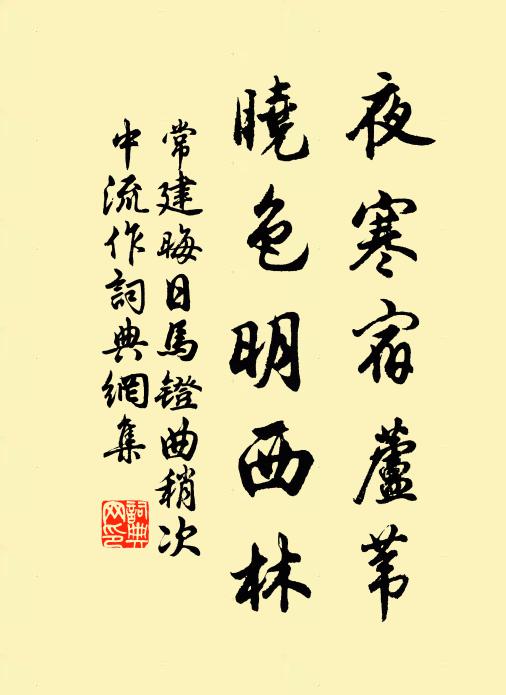 夜寒宿蘆葦
曉色明西林
常建晦日馬鐙曲稍次
中流作詞典網集
詞典
网印